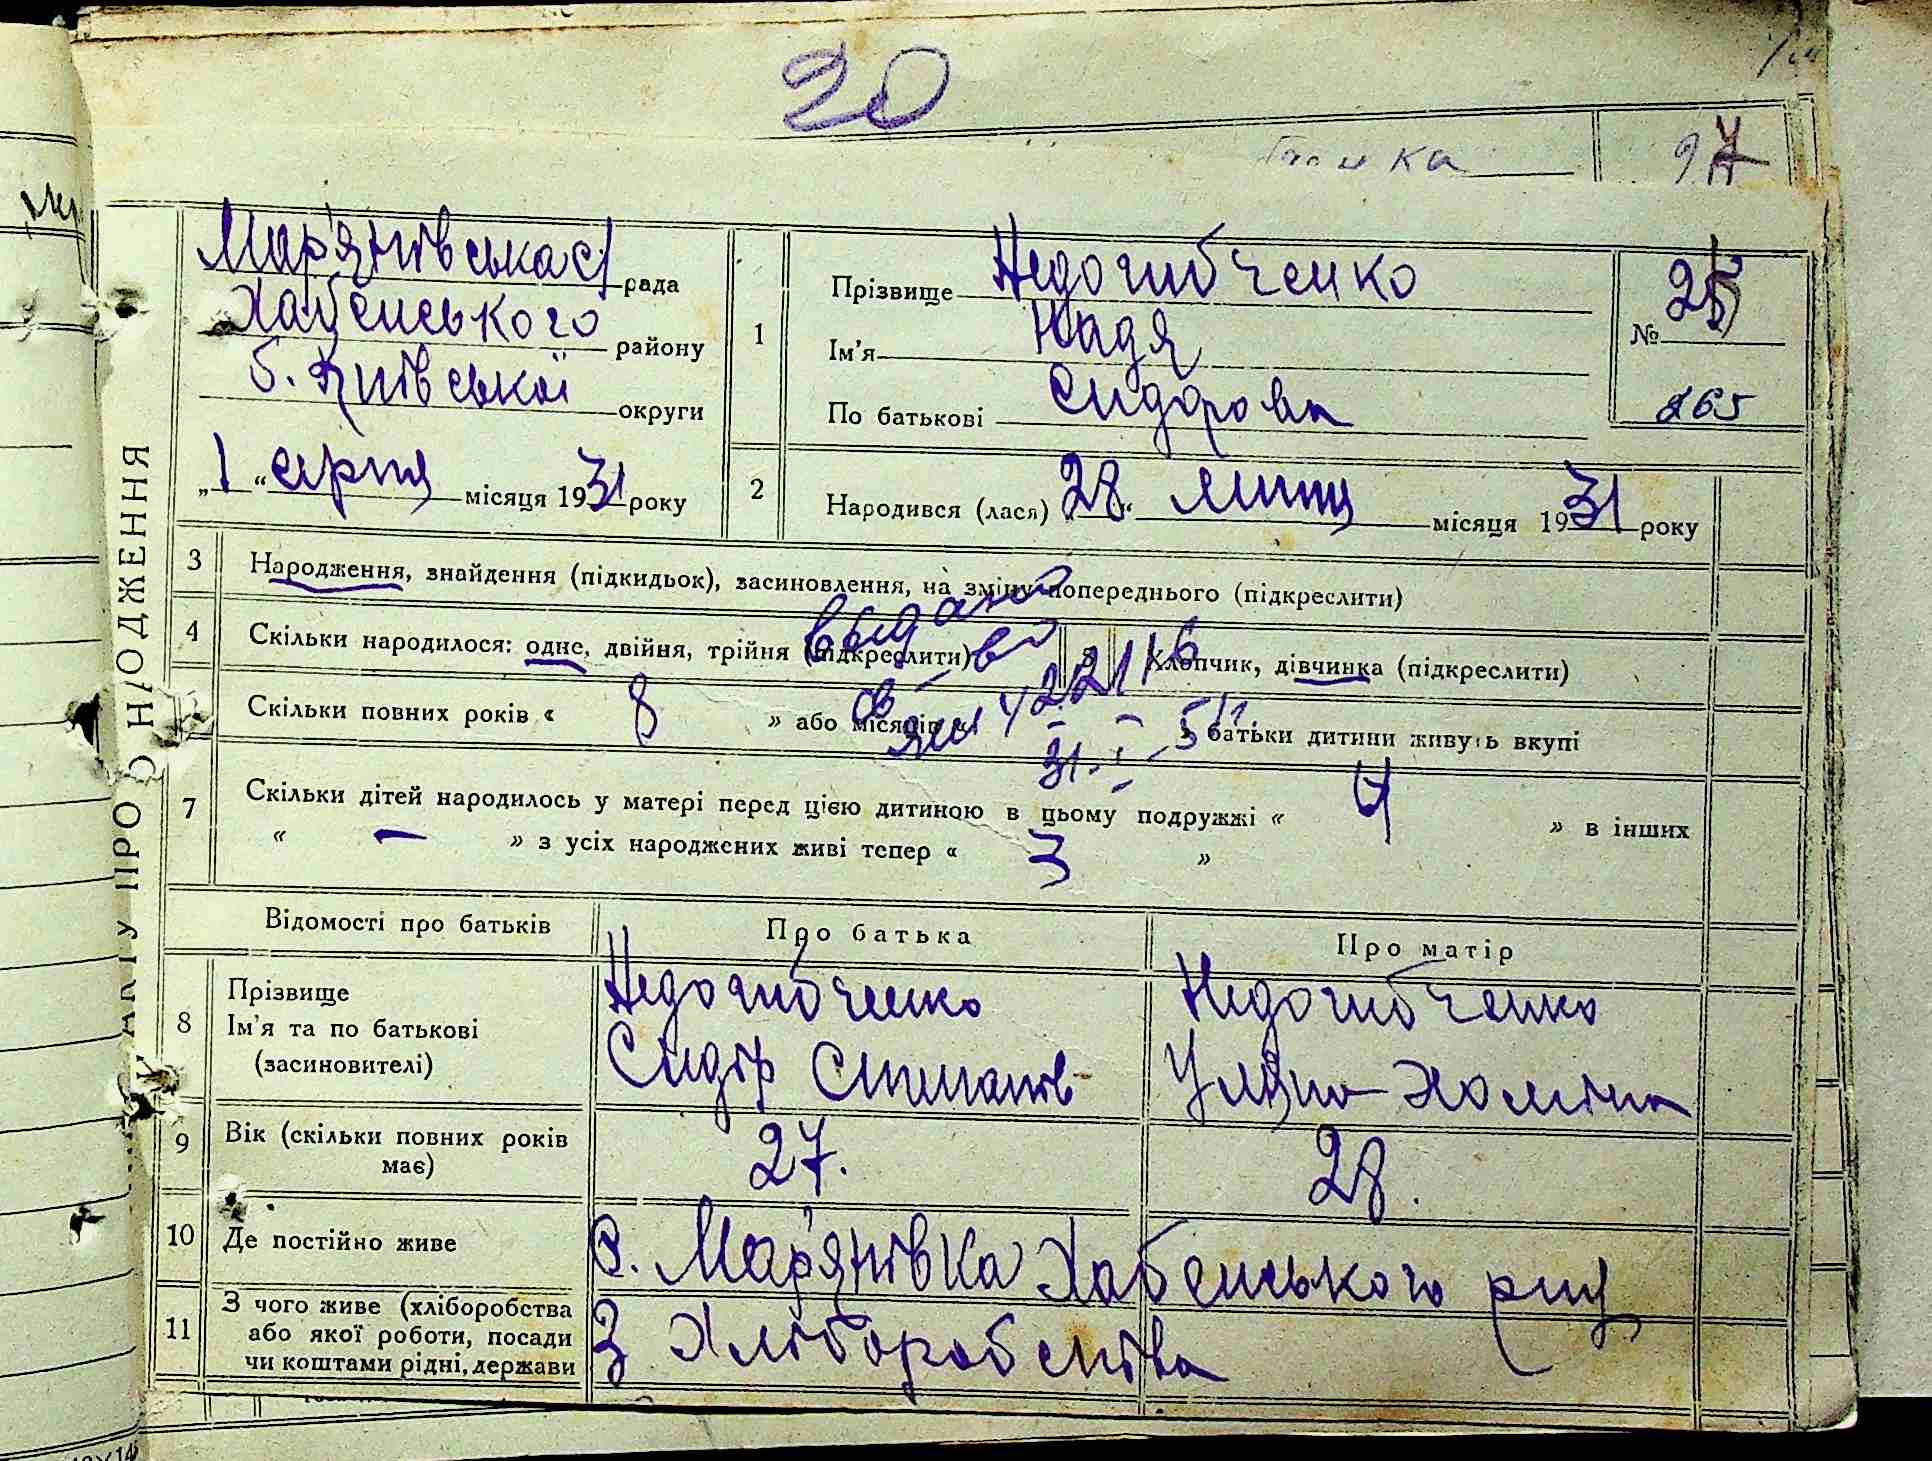 20
97
Мар'янівська с/рада
Хабенського району
б. Київської округи
„1“ серпня місяця 1931 року
1
Прізвище Недогибченко
Ім'я Надя
По батькові Сидорова
№ 25
265
2
Народився (лася) „28“ липня місяця 1931 року
3 Народження, знайдення (підкидьок), засиновлення, на зміну попереднього (підкреслити)
4 Скільки народилося: одне, двійня, трійня (підкреслити) 5 Хлопчик, дівчинка (підкреслити)
выдано
св-во
221116
Скільки повних років « 8 » або місяців « » батьки дитини живуть вкупі
31. I - 51
7 Скільки дітей народилось у матері перед цією дитиною в цьому подружжі « 4 » в інших
« — » з усіх народжених живі тепер « 3 »
Відомості про батьків Про батька Про матір
8 Прізвище Недогибченко Недогибченко
Ім'я та по батькові Сидір Степанів Уляна Хоміна
(засиновителі)
9 Вік (скільки повних років має) 27. 28.
10 Де постійно живе с. Мар'янівка Хабенського рну
11 З чого живе (хліборобства або якої роботи, посади чи коштами рідні, держави З хліборобства
НАРОДЖЕННЯ